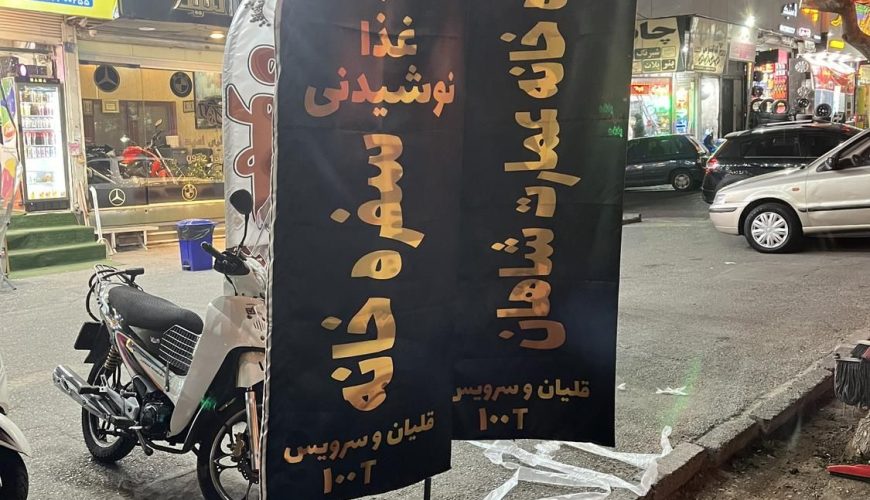 غذا
نوشیدنی
سفره خانه
قلیان و سرویس
۱۰۰T
ه خانه عمارت شاهان
قلیان و سرویس
۱۰۰T